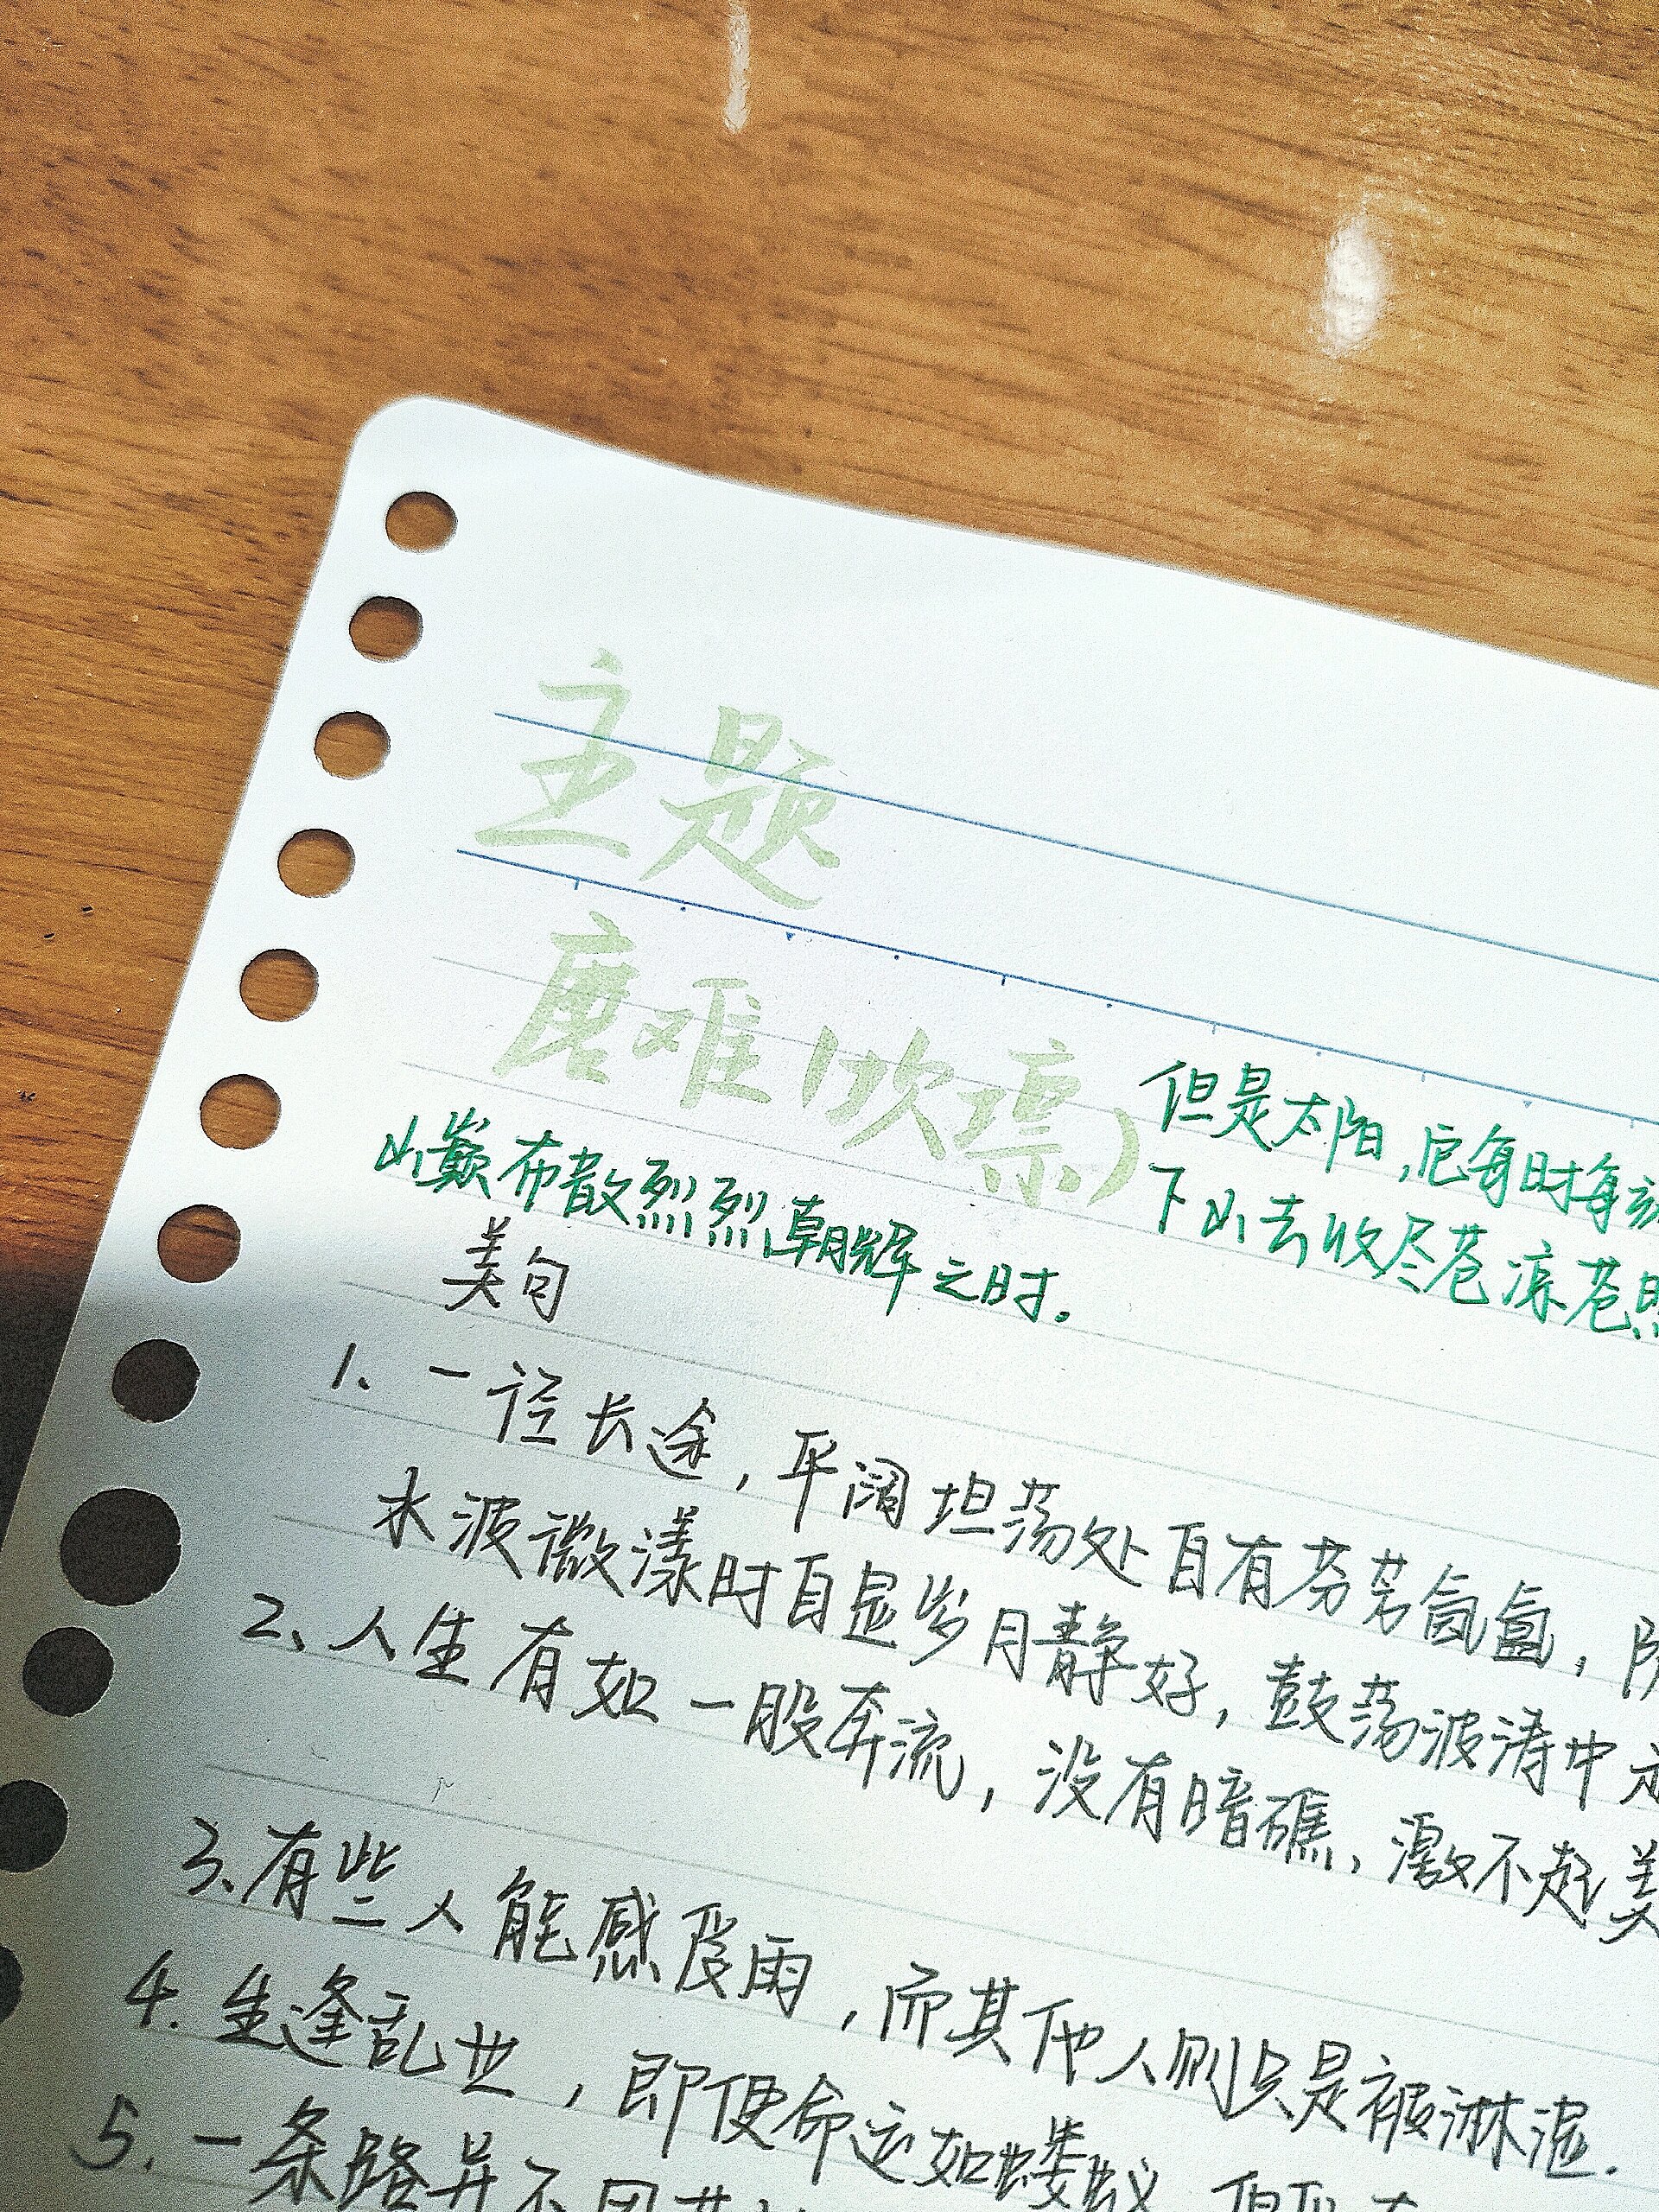 主题
磨难(坎壈)
但是太阳,它每时每刻
下山去收尽苍凉
山巅布散烈烈朝辉之时。
美句
1、一径长途,平阔坦荡处自有芬芳氤氲,
水波微漾时自显岁月静好,鼓荡波涛中
2、人生有如一股奔流,没有暗礁,激不起美
3、有些人能感受雨,而其他人则只是被淋湿.
4.生逢乱世,即便命运如蝼蚁,但仍有
5.一条路并不因